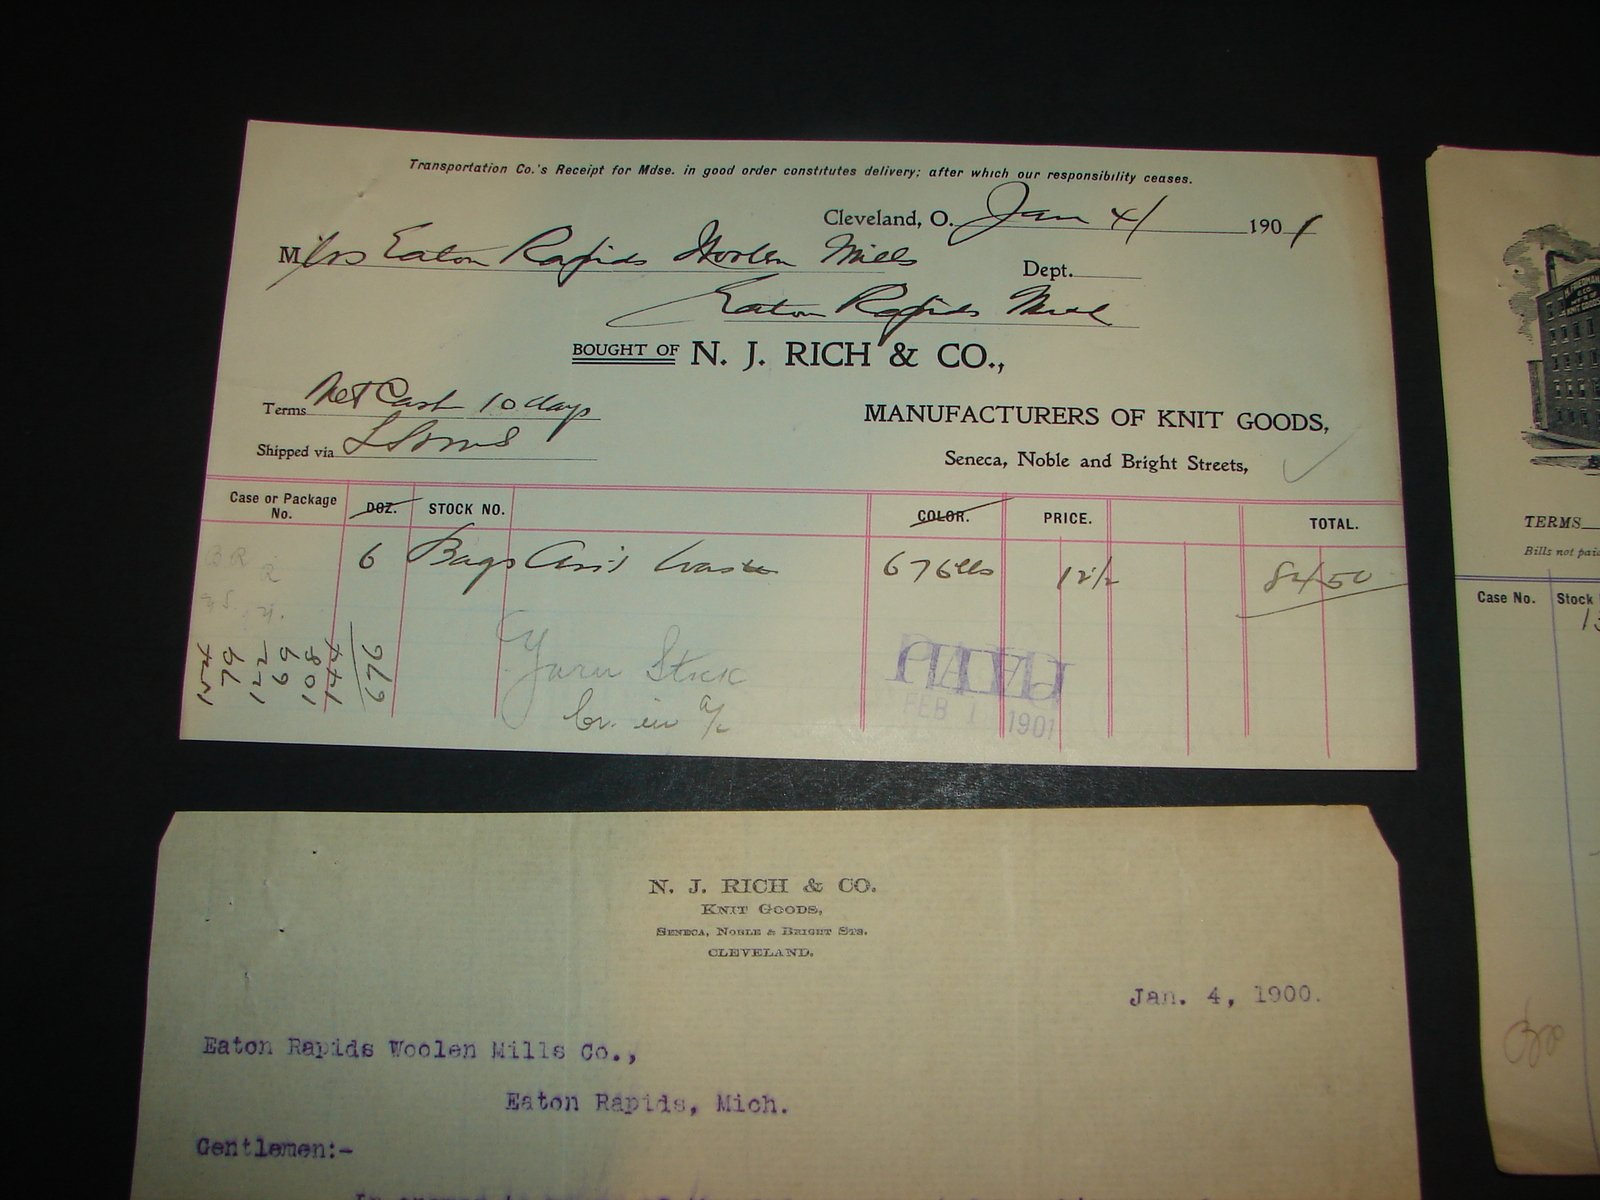 Transportation Co.'s Receipt for Mdse. in good order constitutes delivery; after which our responsibility ceases.
Cleveland, O. Jan 4/ 1901
Eaton Rapids Woolen Mills
Dept.
Eaton Rapids Mich
BOUGHT OF N. J. RICH & CO.,
Terms Net Cash 10 days
MANUFACTURERS OF KNIT GOODS,
Shipped via
Seneca, Noble and Bright Streets,
Case or Package No. DOZ. STOCK NO. COLOR. PRICE. TOTAL.
6 Bags 676 lbs 12½ 84 50
154
79
122
69
108
144
676
Yarn Stock
Cr. in a/c
PAID
FEB 1 1901
N. J. RICH & CO.
KNIT GOODS,
SENECA, NOBLE & BRIGHT STS.
CLEVELAND.
Jan. 4, 1900.
Eaton Rapids Woolen Mills Co.,
Eaton Rapids, Mich.
Gentlemen:-
TERMS
Bills not
Case No. Stock